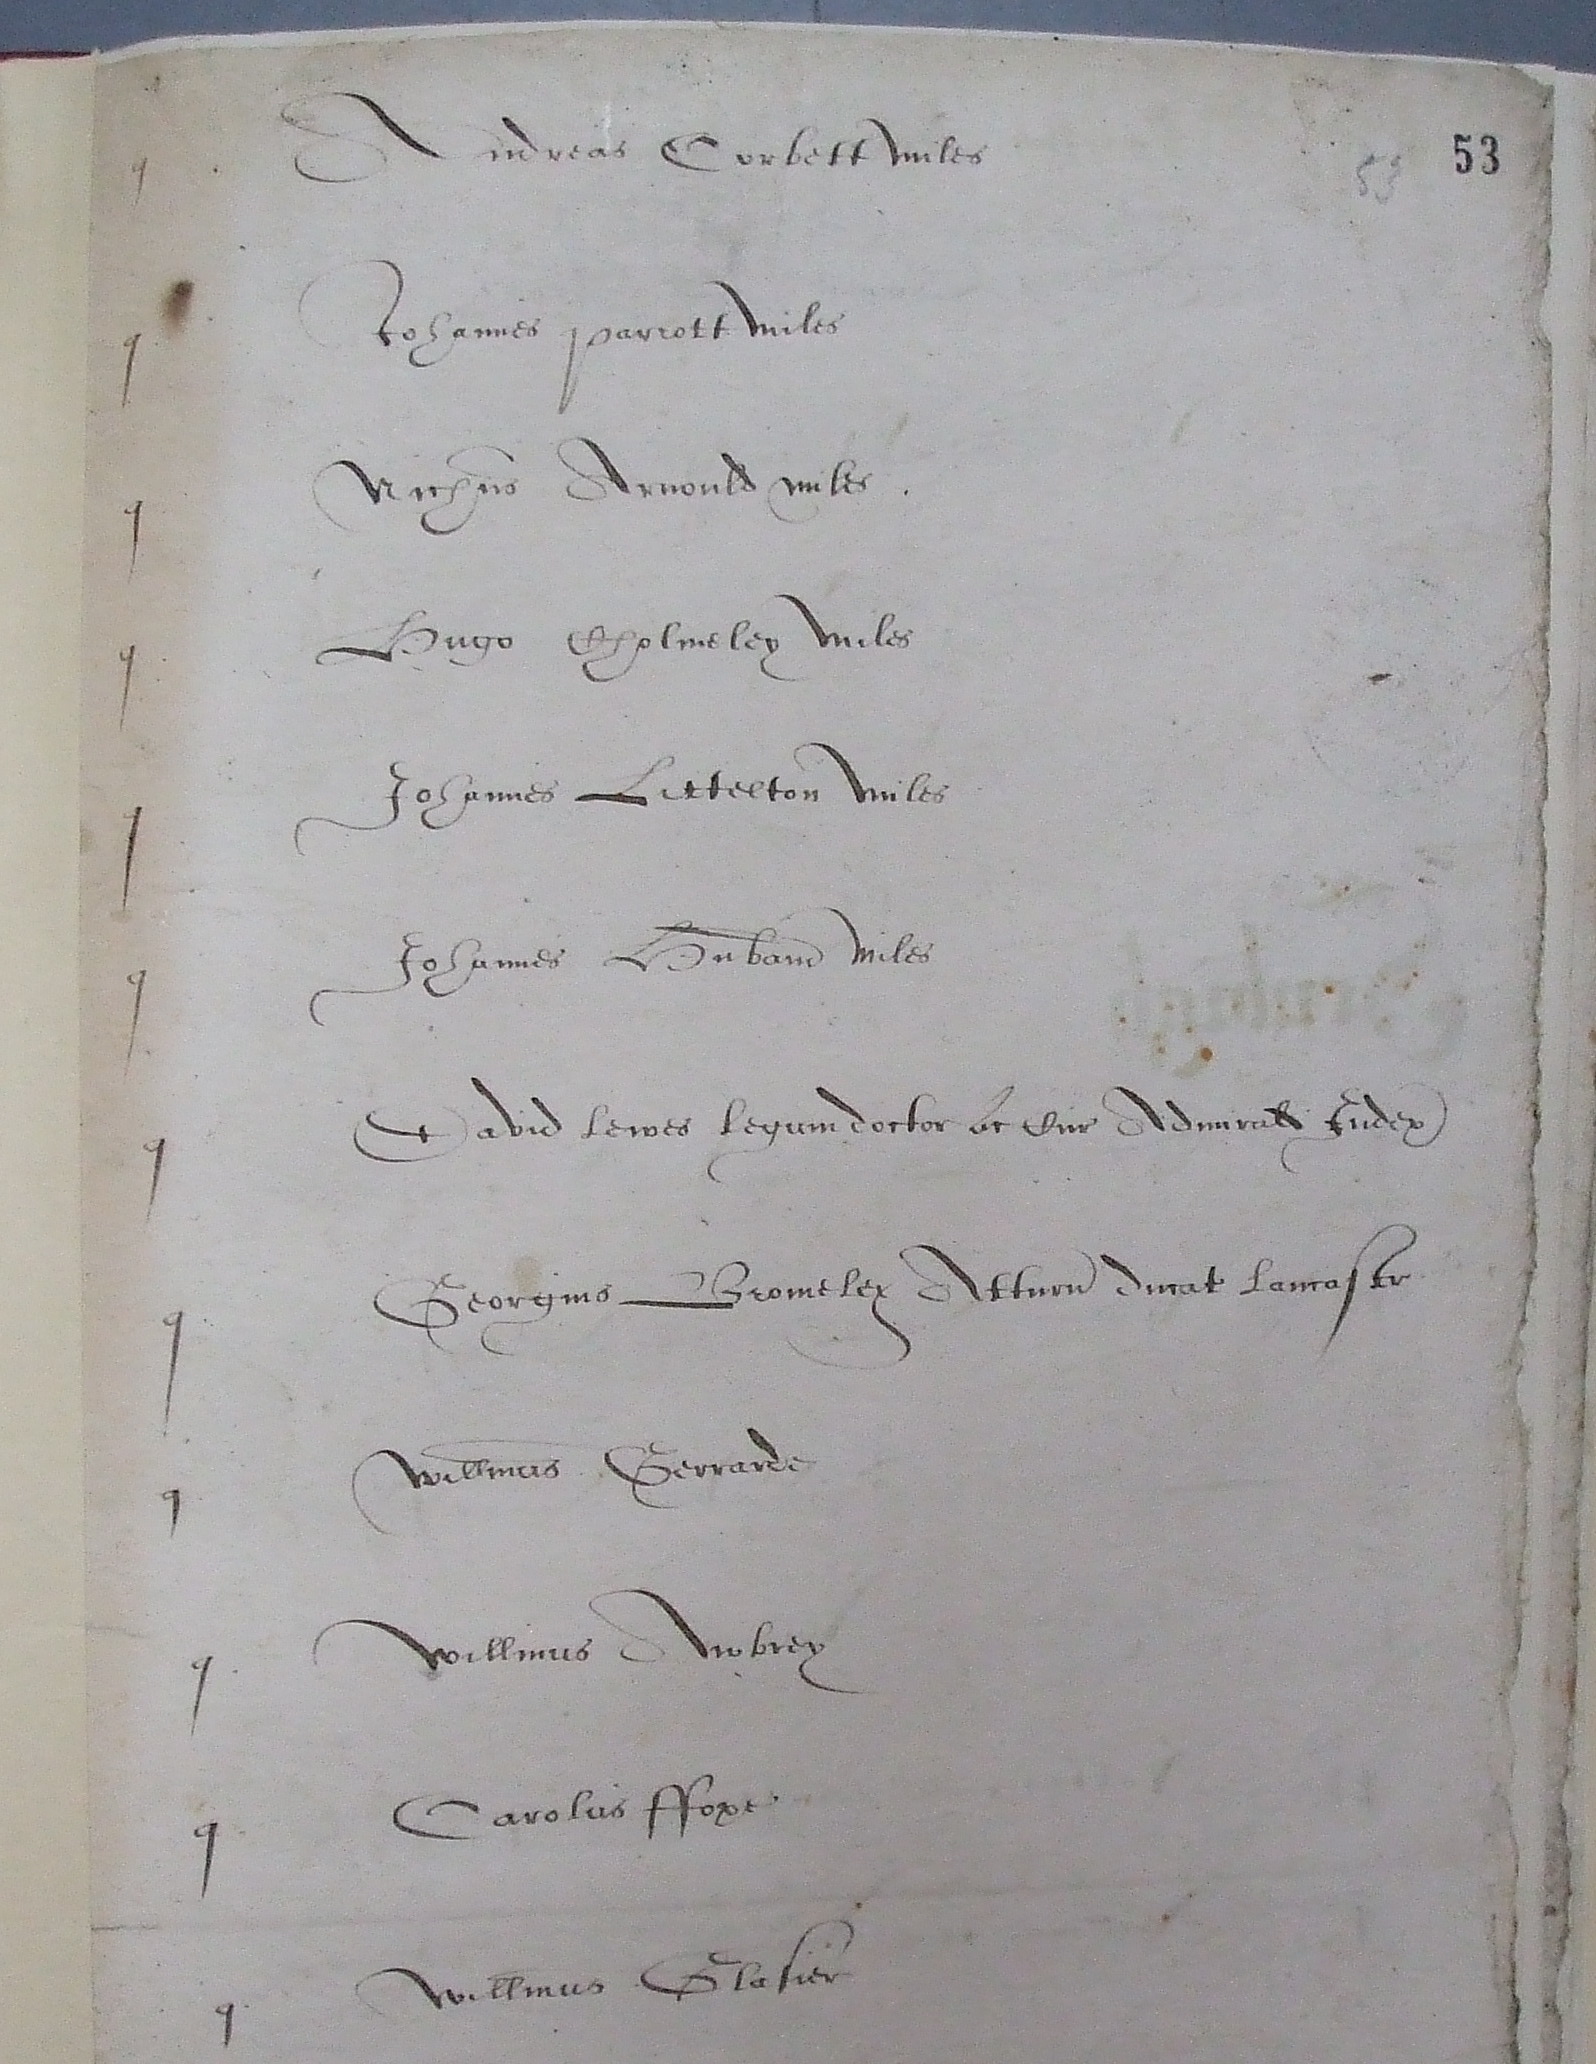 Andreas Corbett miles
53
53
q
Johannes parrott miles
q
Nichus Arnould miles .
q
Hugo Cholmeley miles
q
Johannes Littelton miles
q
Johannes Huband miles
q
David Lewes legum doctor ac Cur Admirall Judex
q
Georgius Bromeley Atturn ducat Lancastr
q
Willmus Gerrarde
q
Willmus Awbrey
q
Carolus ffoxe
q
Willmus Glasier
q